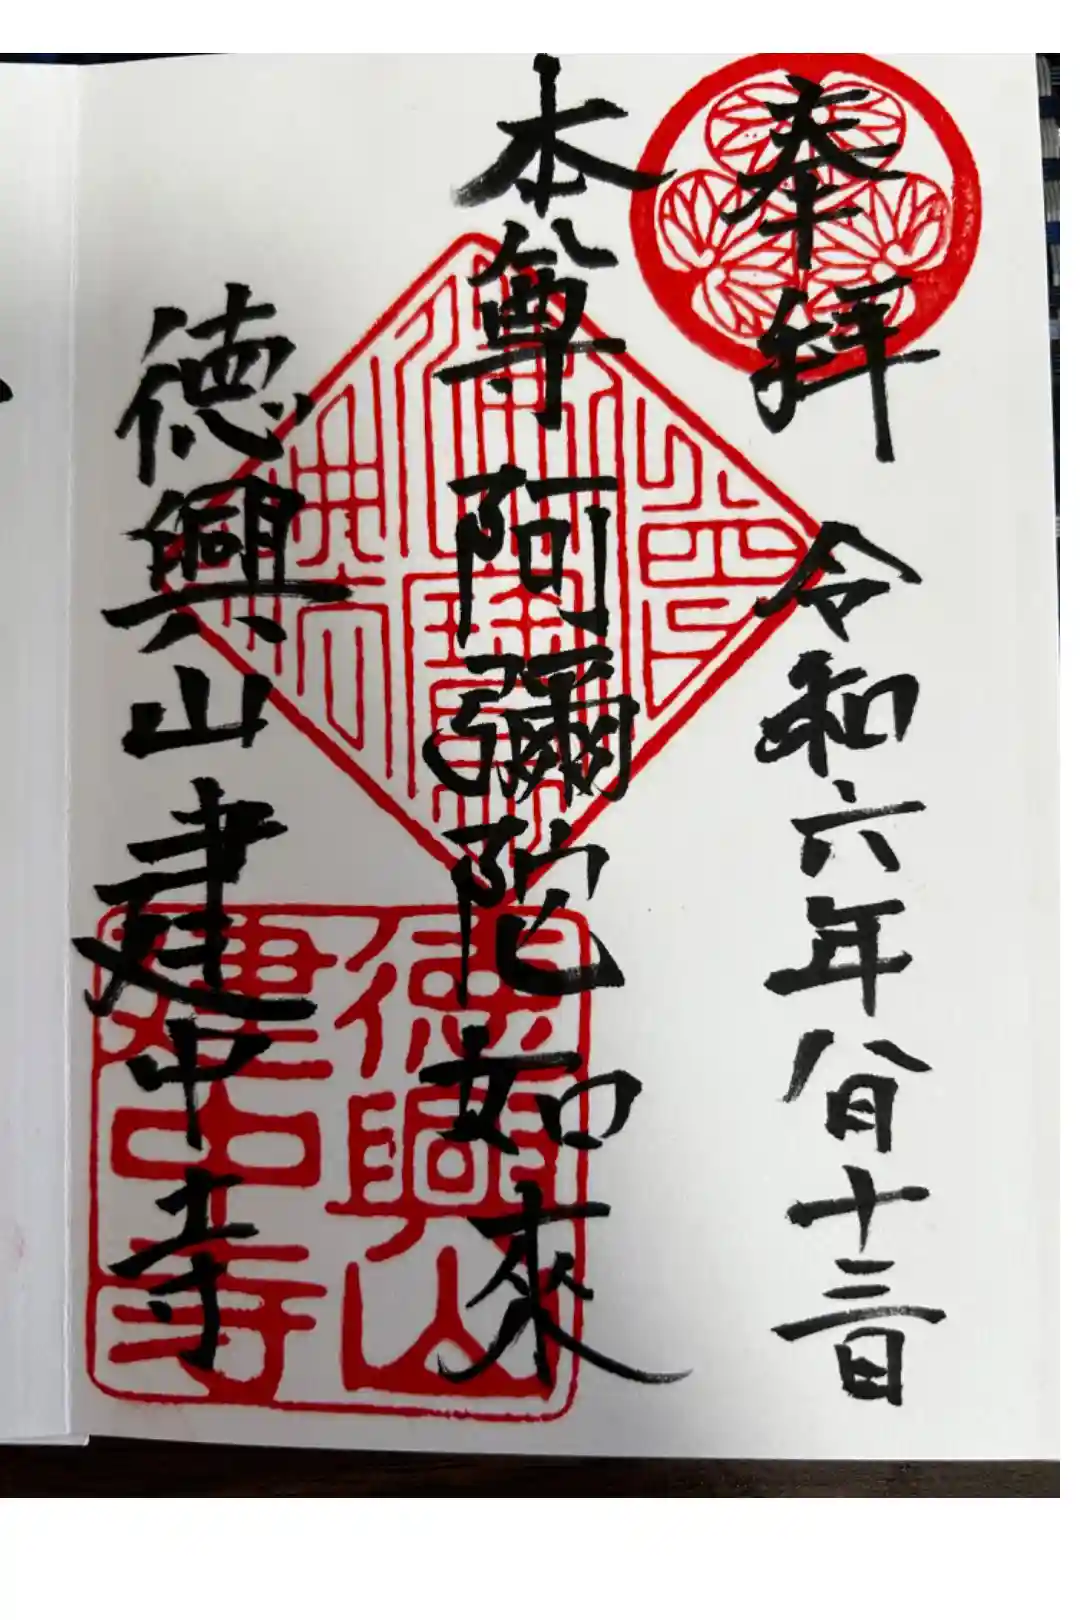 奉拝 令和六年八月十三日
本尊 阿彌陀如來
徳興山 建中寺
徳興山
建中寺